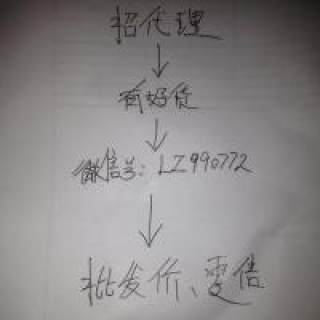 招代理
有好货
微信号:LZ990772
批发价、零售